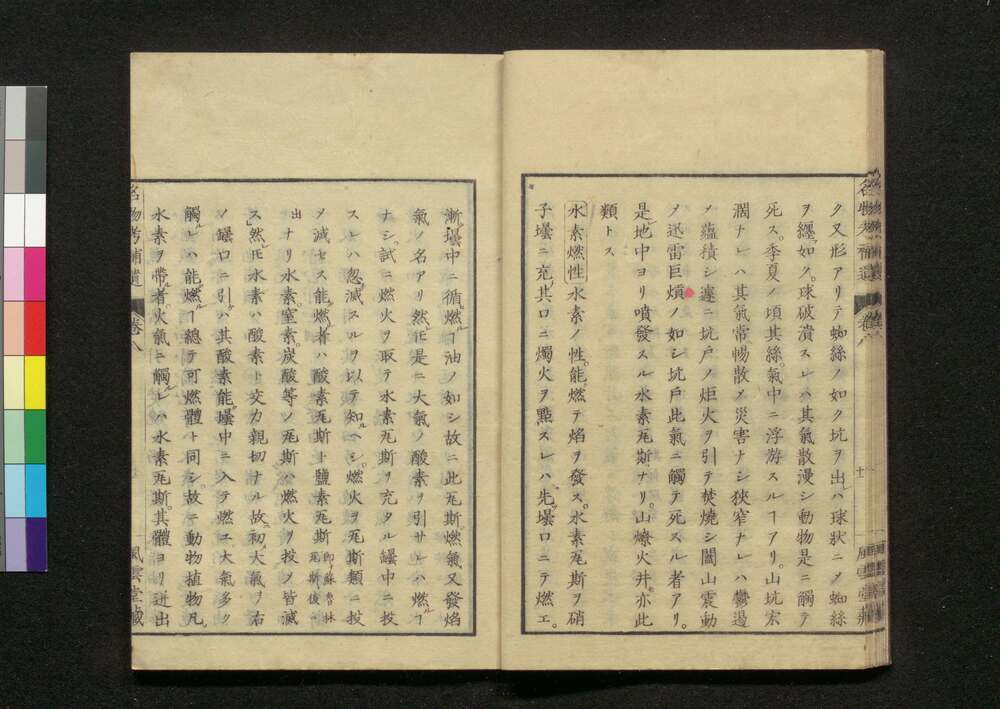 ク又形アリテ蜘絲ノ如ク坑ヲ出レハ球狀ニノ蜘絲
ヲ纒フ如ノ。球破潰スレハ其氣散漫シ動物是ニ觸テ
死ス。季夏ノ頃其絲。氣中ニ浮游スルヿアリ。山坑宏
濶ナレハ其氣常暢散ノ災害ナシ狹窄ナレハ鬱遏
ノ蘊積シ遽ニ坑戸ノ炬火ヲ引テ焚燒シ闔山震動
ノ迅雷巨熕ノ如シ坑戸此氣ニ觸テ死スル者アリ。
是レ地中ヨリ噴發スル水素瓦斯ナリ。山燎火井モ亦此
類トス
水素燃性 水素ノ性能燃テ焰ヲ發ス。水素瓦斯ヲ硝
子壜ニ充テ其口ニ燭火ヲ點スレハ先ツ壜口ニテ燃エ。
漸ク壜中ニ循テ燃ルヿ油ノ如シ故ニ此瓦斯。燃氣又發焰
氣ノ名アリ然𪜈是ニ大氣ノ酸素ヲ引サレハ燃ルヿ
ナシ。試ニ燃火ヲ取テ水素瓦斯ヲ充タル罎中ニ投
スレハ忽滅スルヲ以テ知ルヘシ。燃火ヲ瓦斯類ニ投
ノ滅セス能燃ル者ハ酸素瓦斯ト鹽素瓦斯 卽蘇魯林瓦斯後ニ
出ツナリ水素。窒素。炭酸等ノ瓦斯ハ燃火ヲ投ノ皆滅
ス然𪜈水素ハ酸素ト交力親切ナル故ニ初メ大氣ヲ右
ノ罎口ニ引ケハ其酸素能壜中ニ入テ燃ユ大氣多ク
觸レハ能燃ルヿ總テ可燃體ト同シ。故ニ動物植物凡
水素ヲ帶ル者火氣ニ觸ルレハ水素瓦斯。其體ヨリ迸出
名物考補遺 卷八 十一 風雲堂藏
名物考補遺 卷八 風雲堂藏